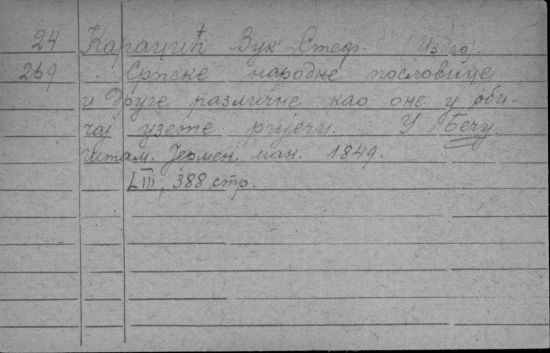 24 Караџић Вук Стеф. (Издао).
269 Српске народне пословице
и друге различне као оне у оби-
чај узете ријечи. У Бечу.
Штам. Јермен. ман. 1849.
LIII, 388 стр.